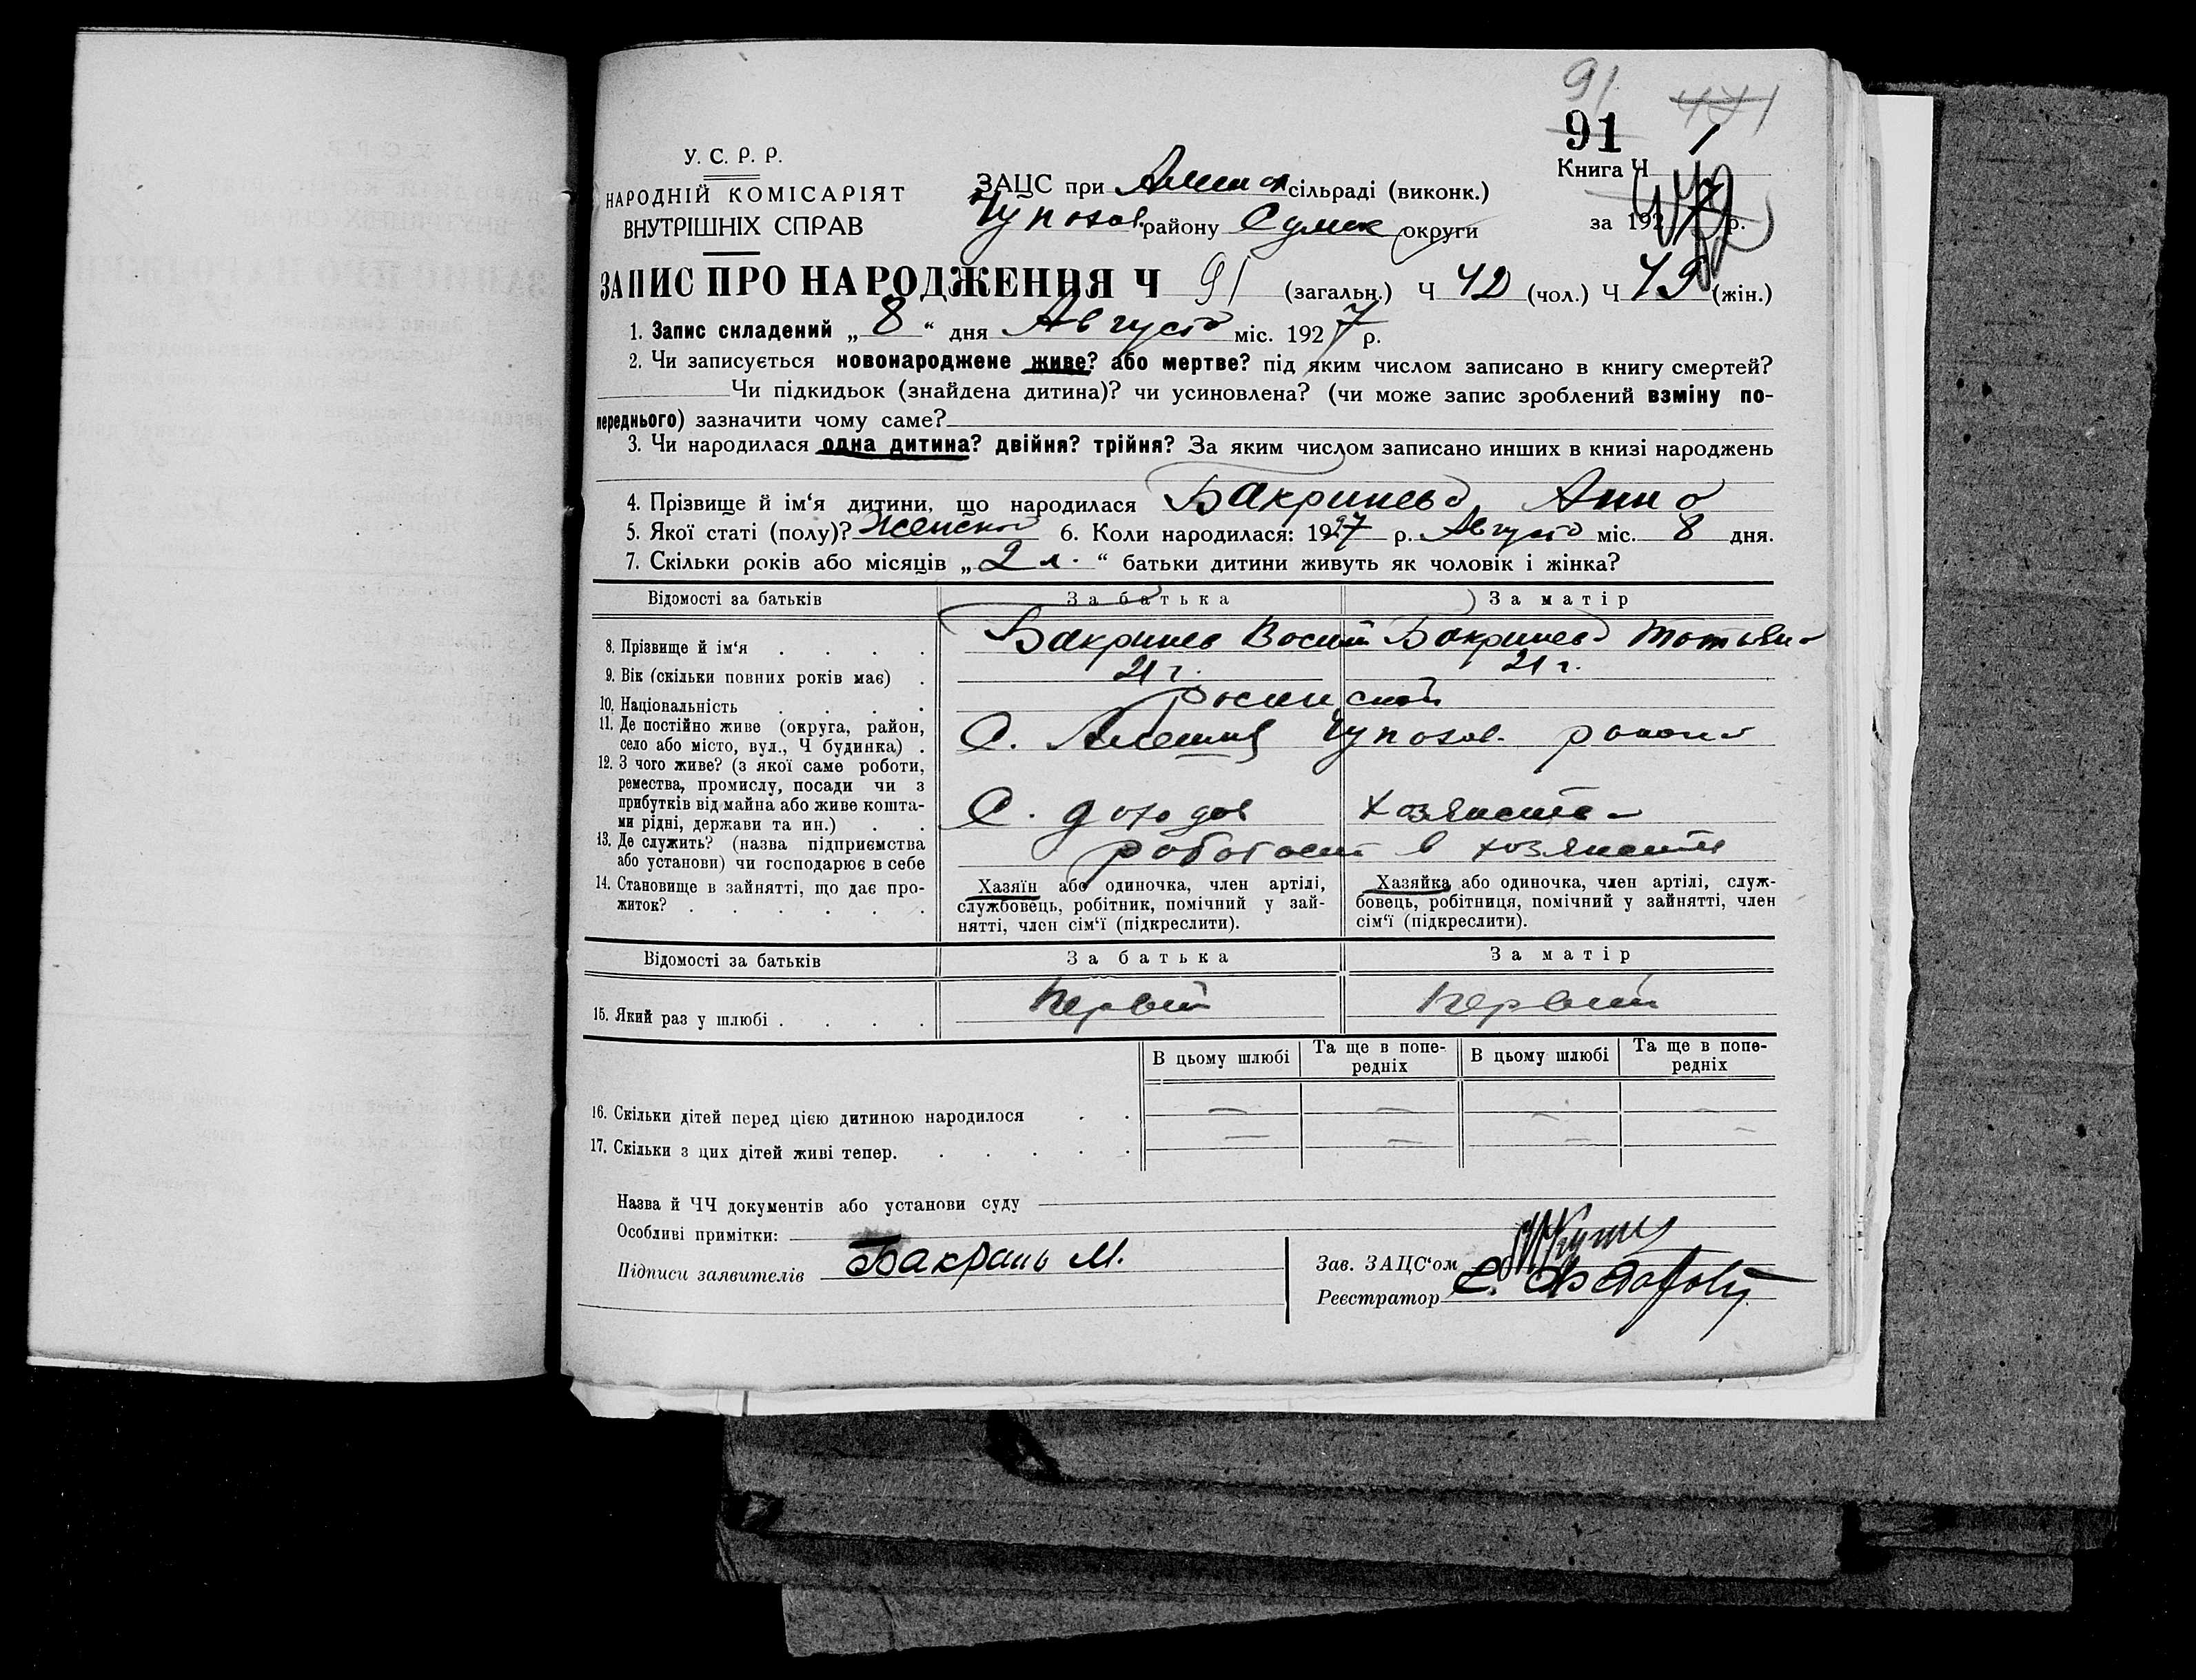 91
471
91 1
У. С. Р. Р.
НАРОДНІЙ КОМІСАРІЯТ
ВНУТРІШНІХ СПРАВ
Книга Ч
ЗАЦС при сільраді (виконк.)
району Сумск округи
за 1927 р.
ЗАПИС ПРО НАРОДЖЕННЯ Ч 91 (загальн.) Ч 42 (чол.) Ч 49 (жін.)
1. Запис складений „ 8 “ дня Августа міс. 1927 р.
2. Чи записується новонароджене живе? або мертве? під яким числом записано в книгу смертей?
Чи підкидьок (знайдена дитина)? чи усиновлена? (чи може запис зроблений взміну по-
переднього) зазначити чому саме?
3. Чи народилася одна дитина? двійня? трійня? За яким числом записано инших в книзі народжень
4. Прізвище й ім'я дитини, що народилася Бакринева Анна
5. Якої статі (полу)? Женской 6. Коли народилася: 1927 р. Августа міс. 8 дня.
7. Скільки років або місяців „ 2 л. “ батьки дитини живуть як чоловік і жінка?
Відомості за батьків За батька За матір
8. Прізвище й ім'я . . . . Бакринев Васили Бакринева Татьяна
9. Вік (скільки повних років має) . 21 г. 21 г.
10. Національність . . . .
11. Де постійно живе (округа, район,
село або місто, вул., Ч будинка) . С. Алешня района
12. З чого живе? (з якої саме роботи,
ремества, промислу, посади чи з
прибутків від майна або живе кошта-
ми рідні, держави та ин.) . . С. доходов хозяйства
13. Де служить? (назва підприємства
або установи) чи господарює в себе работает в хозяйстве
14. Становище в зайнятті, що дає про-
житок? . . . . . .
Хазяїн або одиночка, член артілі,
службовець, робітник, помічний у зай-
нятті, член сім'ї (підкреслити).
Хазяйка або одиночка, член артілі, служ-
бовець, робітниця, помічний у зайнятті, член
сім'ї (підкреслити).
Відомості за батьків За батька За матір
15. Який раз у шлюбі . . . . Первый Первый
В цьому шлюбі Та ще в попе- В цьому шлюбі Та ще в попе-
редніх редніх
16. Скільки дітей перед цією дитиною народилося . . — — — —
17. Скільки з цих дітей живі тепер. . . . . . — — — —
Назва й ЧЧ документів або установи суду
Особливі примітки:
Підписи заявителів Бакрань М.
Зав. ЗАЦС'ом
Реєстратор